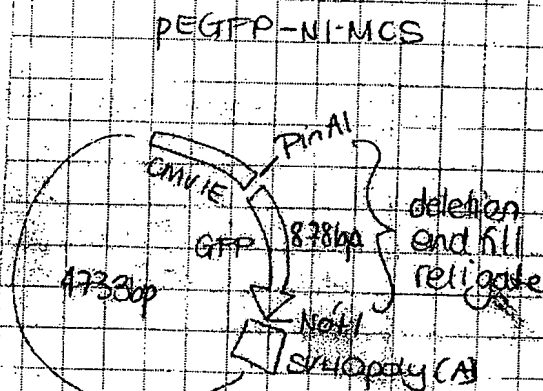 pEGFP-N1-MCS
PinAI
CMVIE
GFP
878bp
deletion
end fill
religate
4733bp
NotI
SV40poly(A)